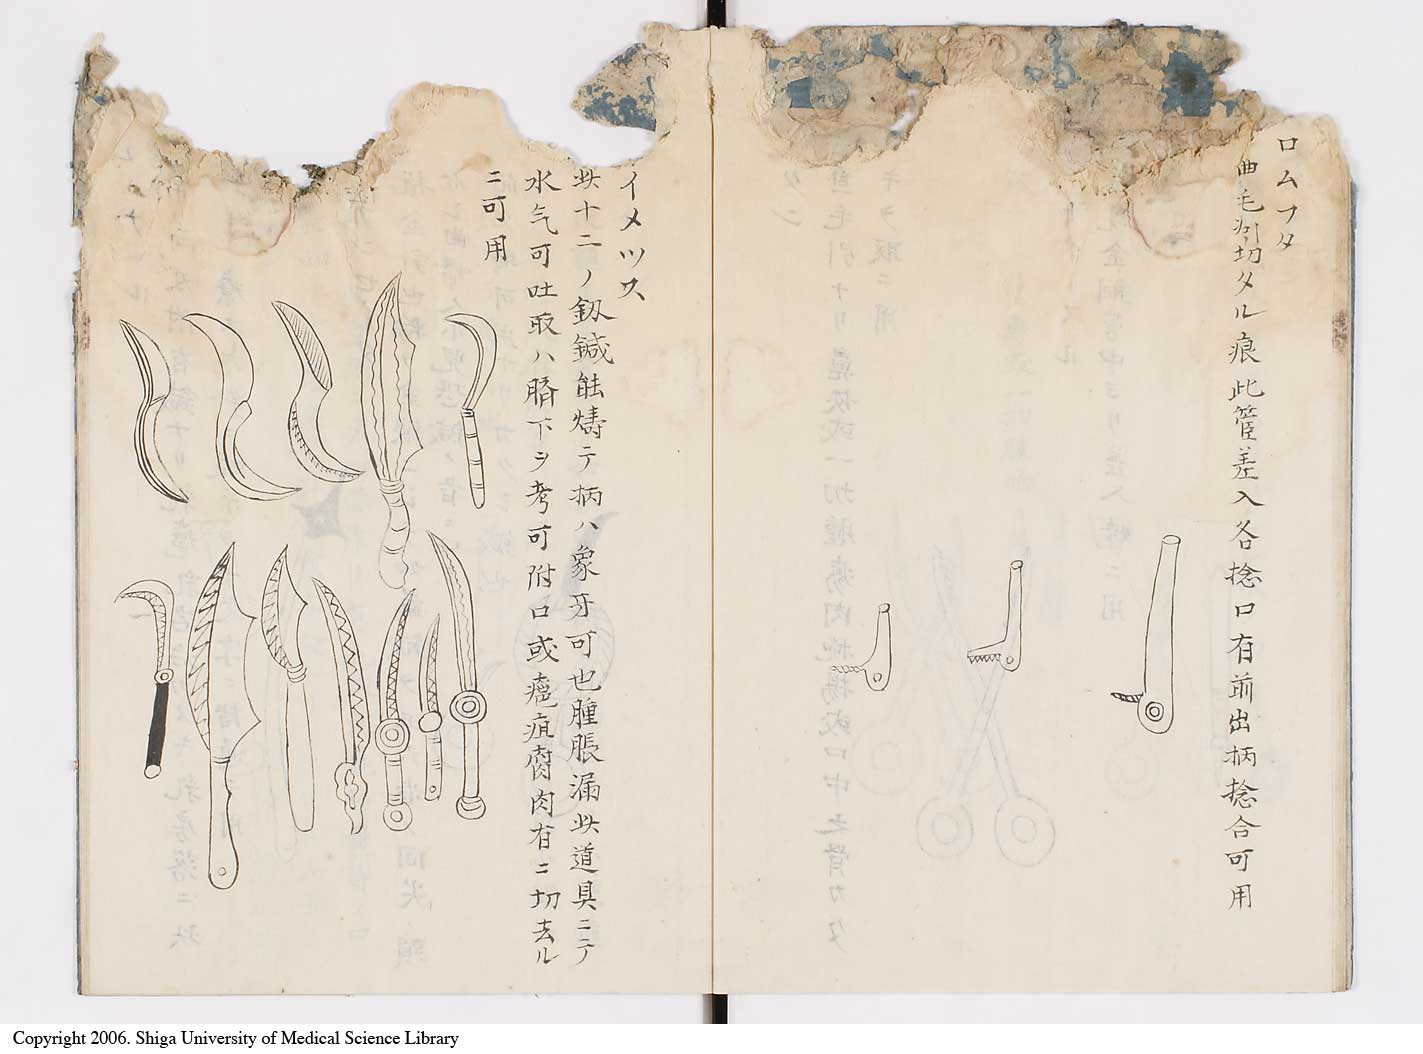 ロムフタ
曲毛引切タル痕此管差入各捻口有前出柄捻合可用
イメツス
此十二ノ釼鍼能鑄テ柄ハ象牙可也腫脹漏此道具ニテ
水气可吐取ハ臍下ヲ考可附口或瘡疽腐肉有ニ切去ル
ニ可用
Copyright 2006. Shiga University of Medical Science Library